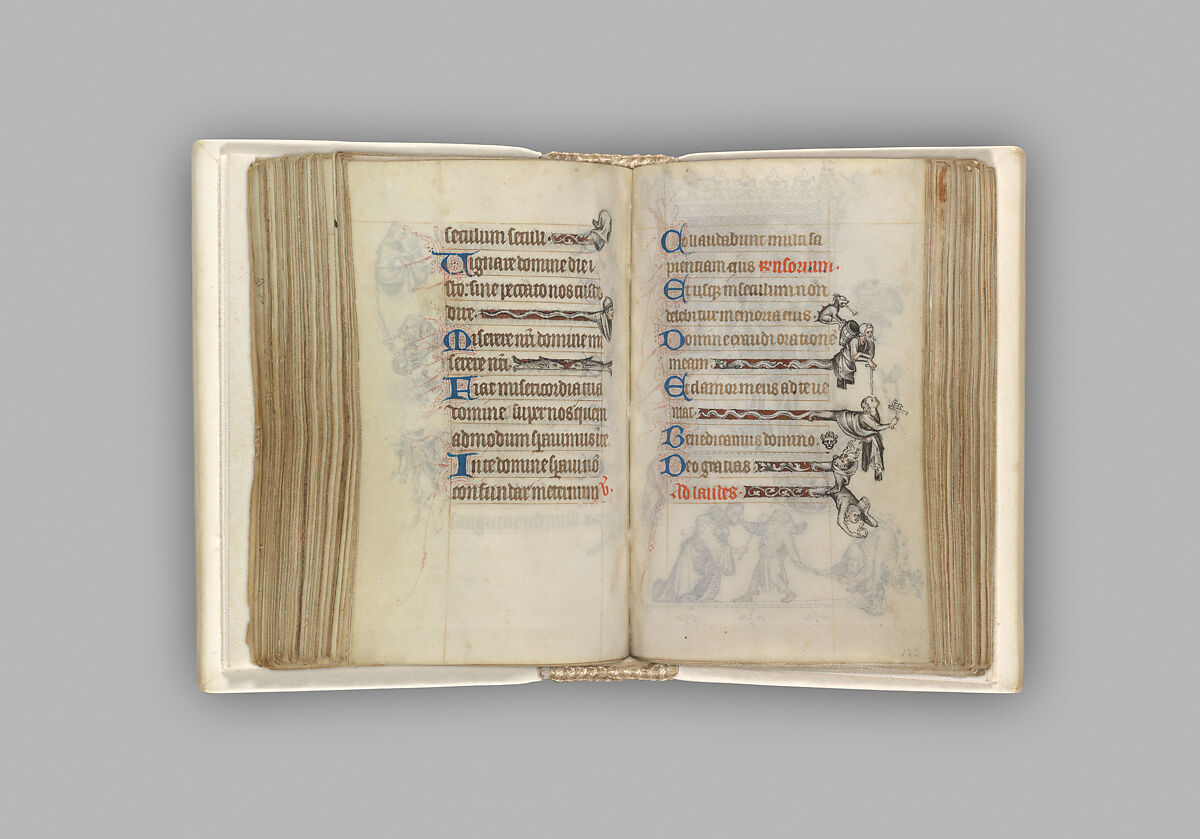 seculum seculi.
Dignare domine die i
sto: sine peccato nos custo
dire.
Miserere nr̄i domine mi
serere nr̄i.
Fiat misericordia tua
domine super nos quem
admodum sꝑauimus ī te
In te domine sꝑaui nō
confundar in eternum. V̄.
Collaudabunt multi sa
pientiam eius
Et usq̄ in seculum non
delebitur memoria eius.
Domine exaudi orationē
meam
Et clamor meus ad te ue
niat.
Benedicamus domino.
Deo gratias
Ad laudes